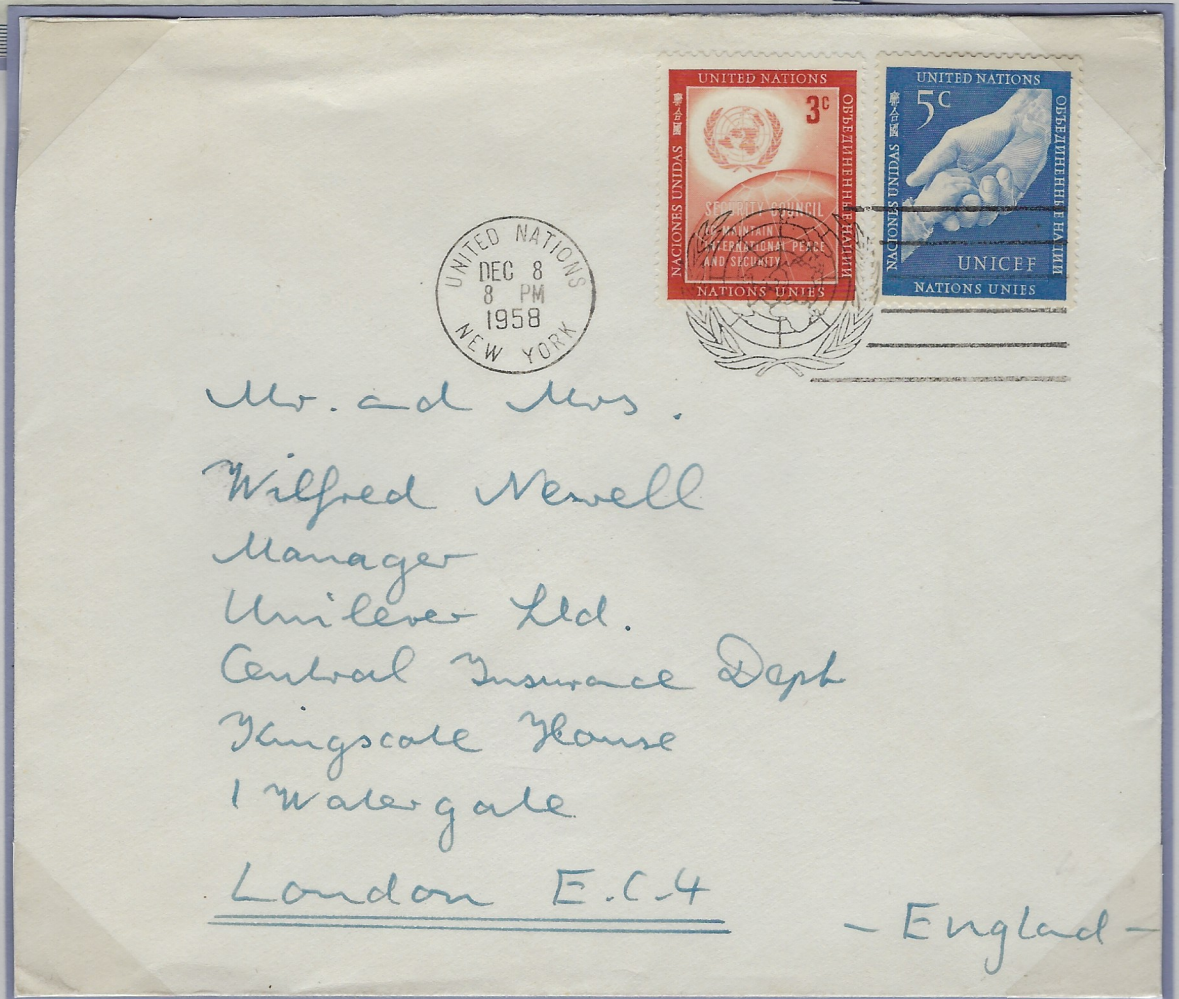 UNITED NATIONS
3c
聯合國
NACIONES UNIDAS
ОБЪЕДИНЕННЫЕ НАЦИИ
SECURITY COUNCIL
TO MAINTAIN
INTERNATIONAL PEACE
AND SECURITY
NATIONS UNIES
UNITED NATIONS
5c
聯合國
NACIONES UNIDAS
ОБЪЕДИНЕННЫЕ НАЦИИ
UNICEF
NATIONS UNIES
UNITED NATIONS
DEC 8
8 PM
1958
NEW YORK
Mr. and Mrs.
Wilfred Newell
Manager
Unilever Ltd.
Central Insurance Dept
Kingscote House
1 Watergate
London E.C.4
- England -